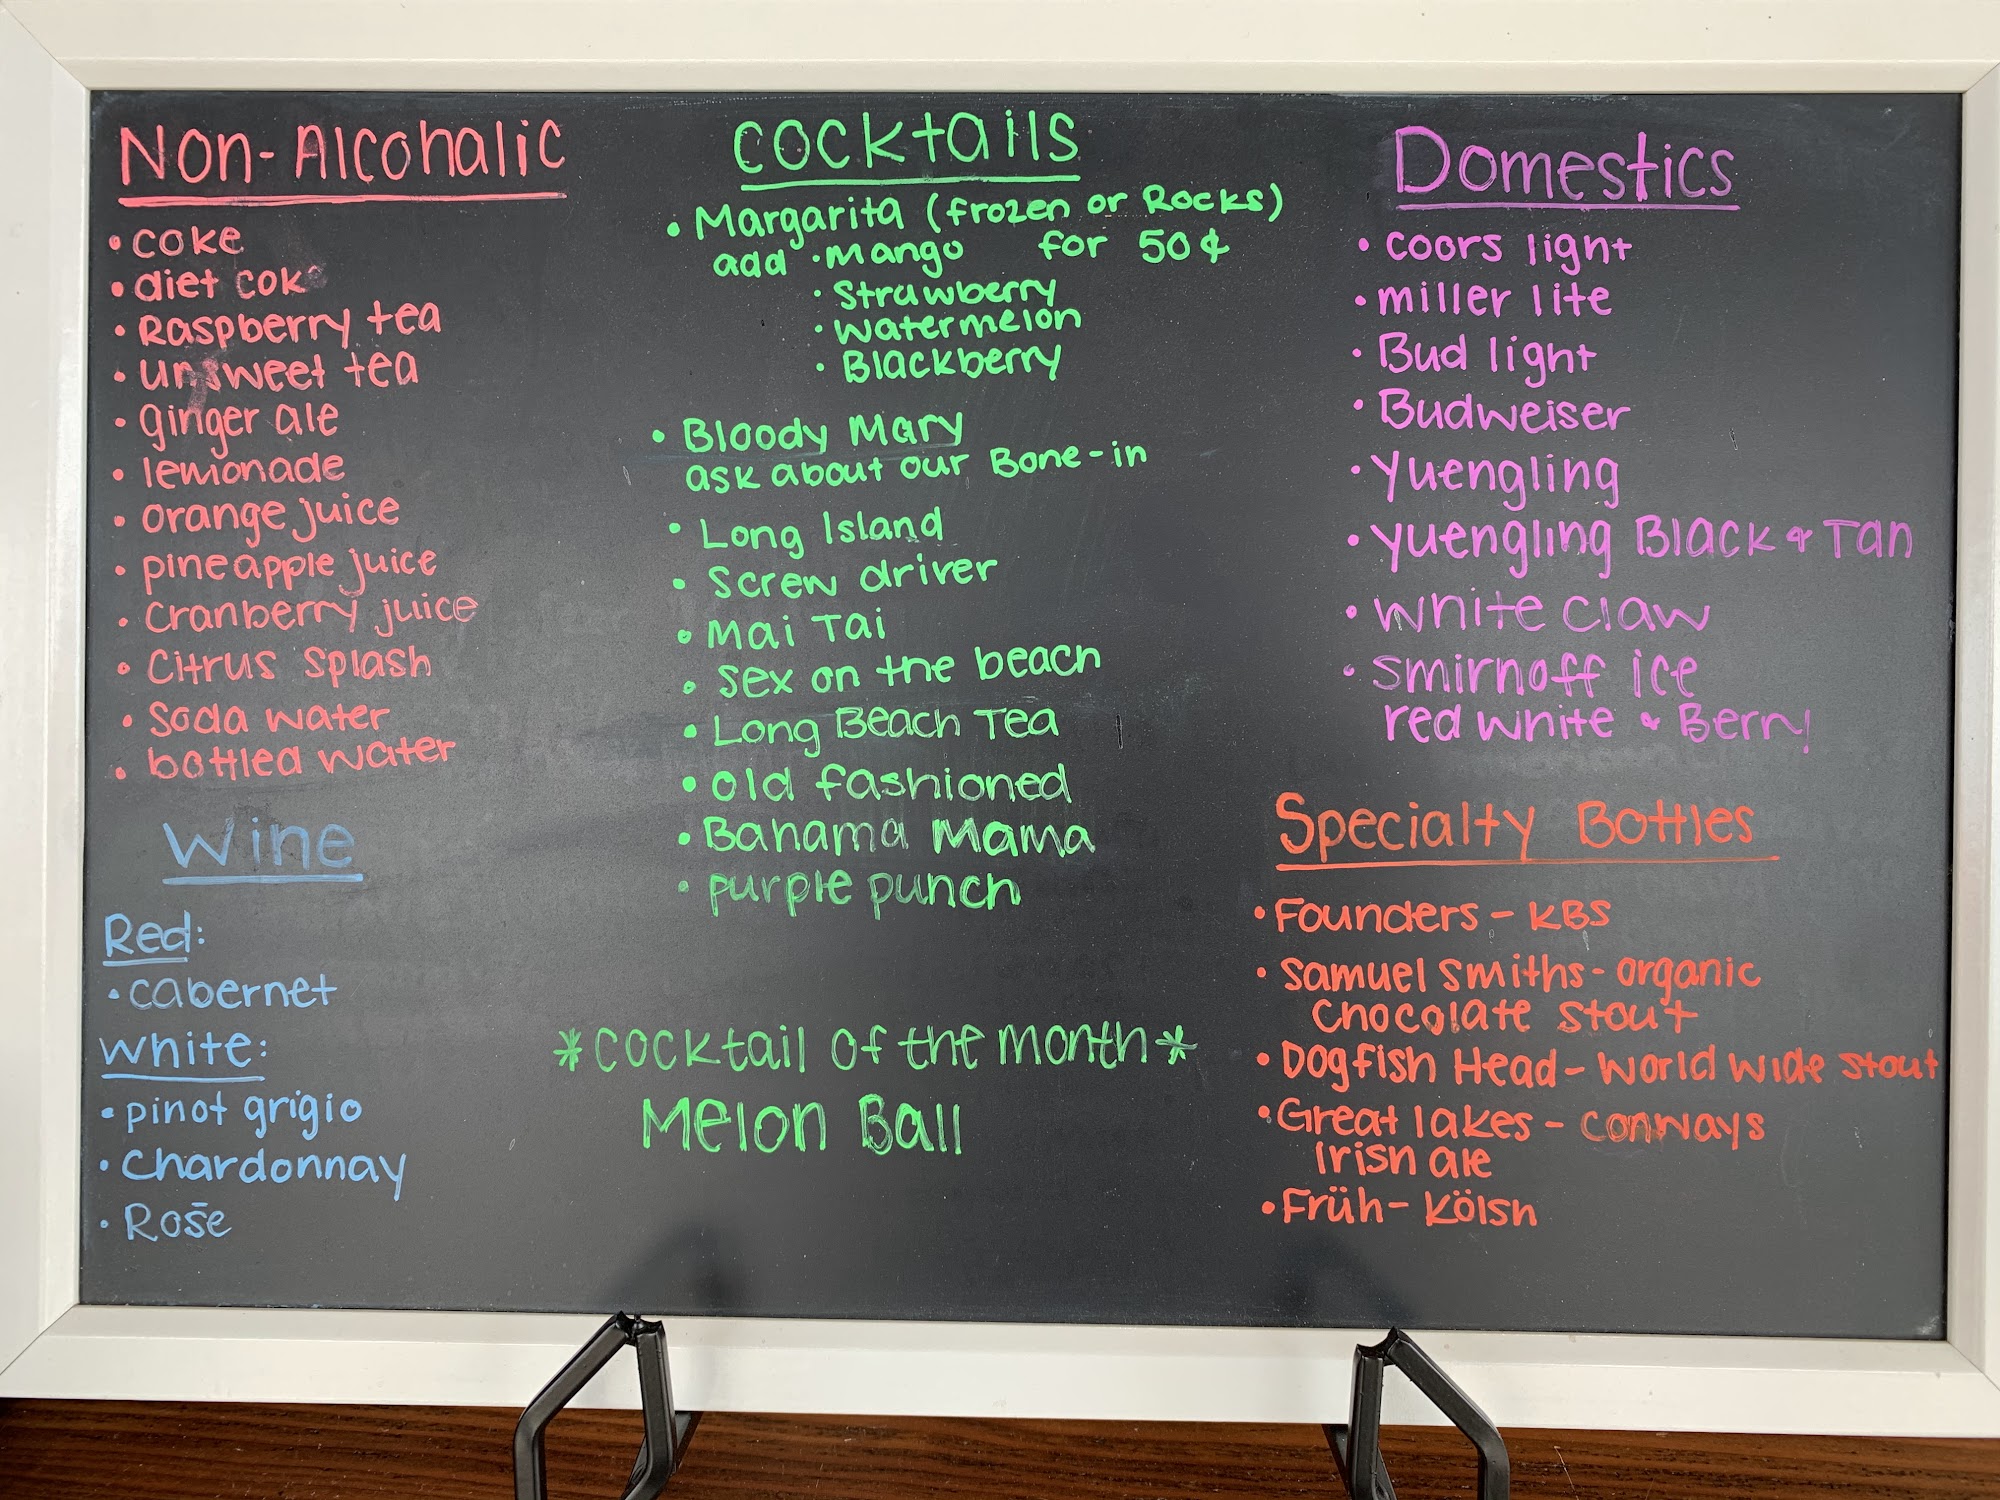 Non-Alcohalic
• coke
• diet cok
• Raspberry tea
• unsweet tea
• ginger ale
• lemonade
• orange juice
• pineapple juice
• Cranberry juice
• Citrus Splash
• Soda water
• bottled water
Wine
Red:
• cabernet
white:
• pinot grigio
• Chardonnay
• Rosē
Cocktails
• Margarita (frozen or Rocks)
add • Mango for 50¢
• Strawberry
• watermelon
• Blackberry
• Bloody Mary
ask about our Bone-in
• Long Island
• Screw driver
• Mai Tai
• Sex on the beach
• Long Beach Tea
• old fashioned
• Bahama Mama
• purple punch
*Cocktail of the month*
Melon Ball
Domestics
• coors light
• miller lite
• Bud light
• Budweiser
• yuengling
• yuengling Black & Tan
• white claw
• smirnoff ice
red white & Berry
Specialty Bottles
• Founders - KBS
• Samuel Smiths - organic
Chocolate stout
• Dogfish Head - World wide stout
• Great lakes - conways
Irish ale
• Früh - Kölsh